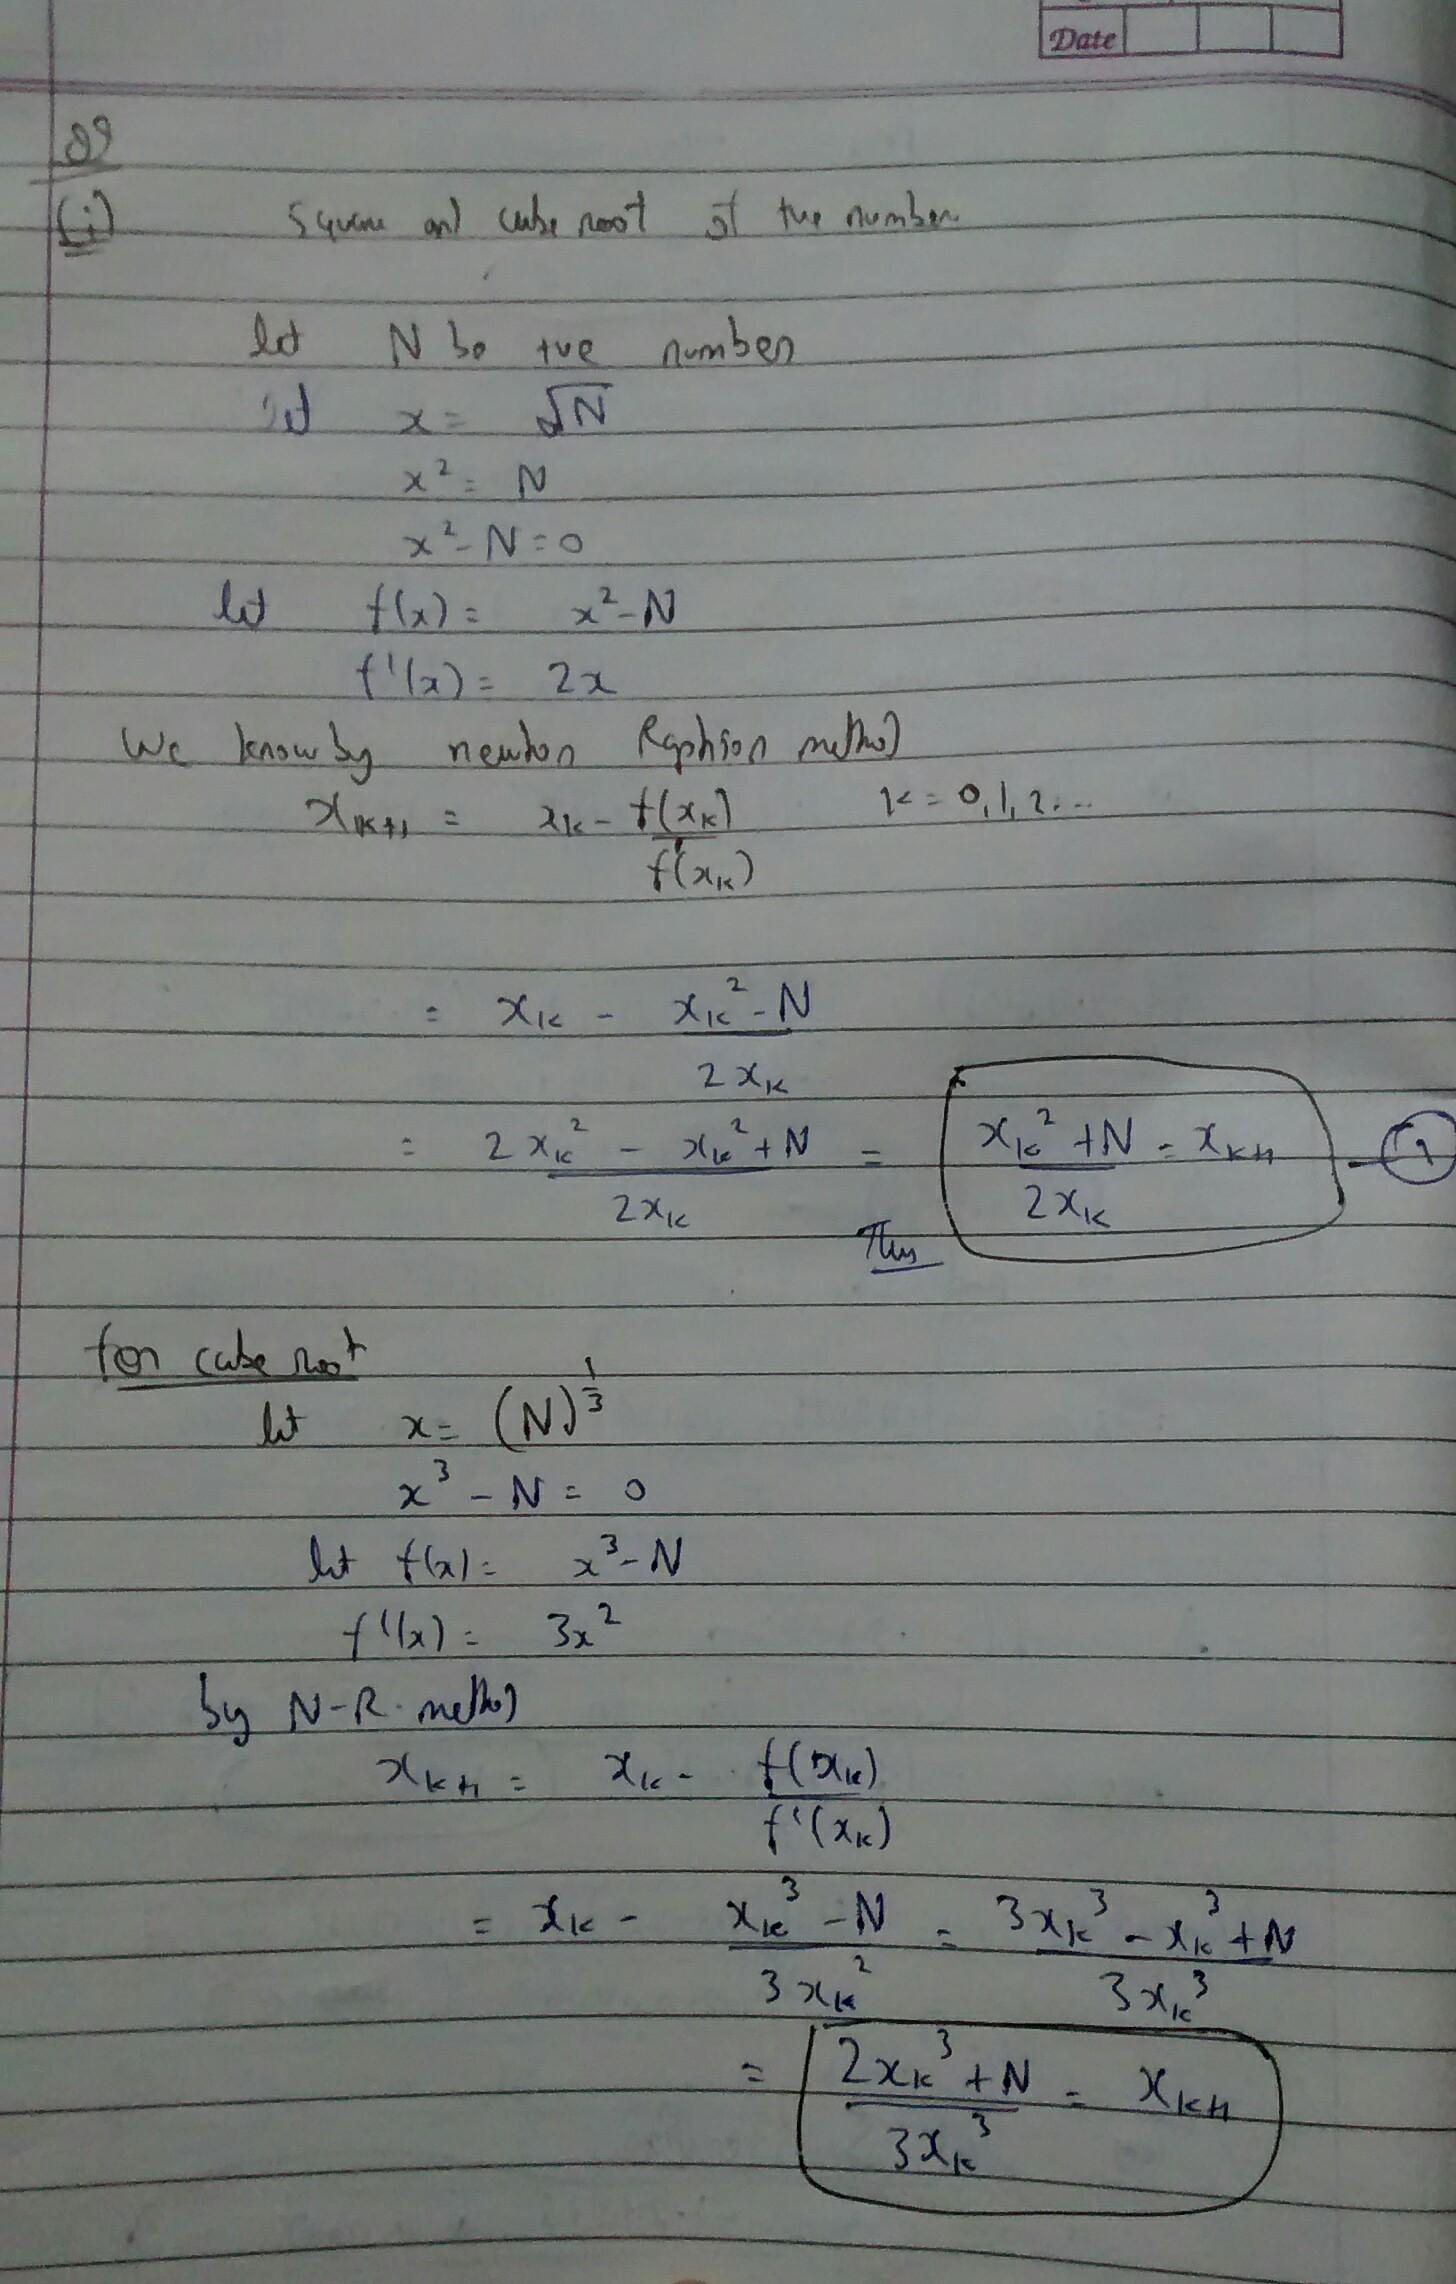 Date
Q9
(i) Square and cube root of +ve number
let N be +ve number
let x = √N
x² = N
x² - N = 0
let f(x) = x² - N
f'(x) = 2x
We know by newton Raphson method
xₖ₊₁ = xₖ - f(xₖ)/f'(xₖ) k = 0, 1, 2...
= xₖ - (xₖ² - N)/2xₖ
= (2xₖ² - xₖ² + N)/2xₖ = (xₖ² + N)/2xₖ = xₖ₊₁ - (1)
Thus
for cube root
let x = (N)^(1/3)
x³ - N = 0
let f(x) = x³ - N
f'(x) = 3x²
by N-R. method
xₖ₊₁ = xₖ - f(xₖ)/f'(xₖ)
= xₖ - (xₖ³ - N)/3xₖ² = (3xₖ³ - xₖ³ + N)/3xₖ³
= (2xₖ³ + N)/3xₖ³ = xₖ₊₁